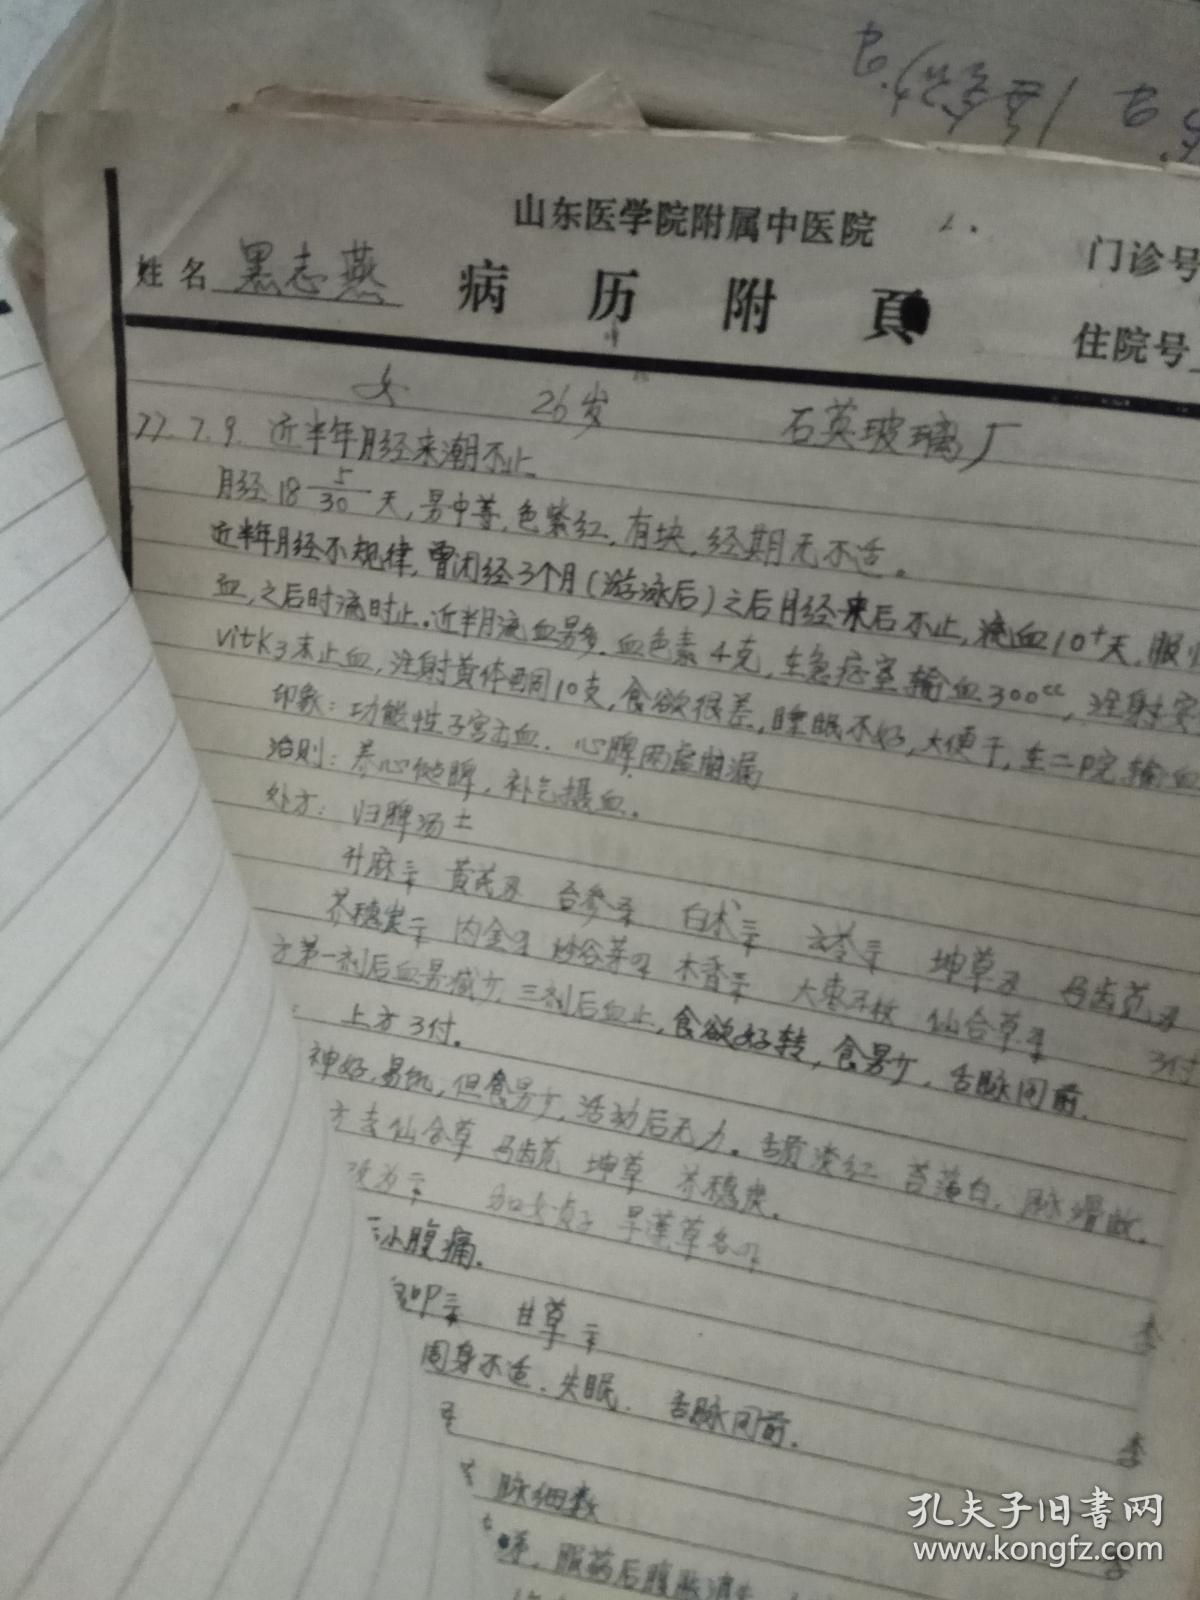 山东医学院附属中医院
门诊号
姓名 黑志燕 病历附頁
住院号
女 26岁 石英玻璃厂
77.7.9. 近半年月经来潮不止
月经18 5/30 天,另中等,色紫红,有块,经期无不适。
近半年月经不规律,曾闭经3个月(游泳后)之后月经来后不止,流血10⁺天,服
血,之后时流时止.近半月流血另多.血色素4克,在急症室输血300cc,注射安
vitk3未止血,注射黄体酮10支,食欲很差,睡眠不好,大便干,在二院输血
印象:功能性子宫出血. 心脾两虚崩漏
治则:养心健脾,补气摄血.
处方:归脾汤土
升麻 黄芪 台参 白术 云苓 坤草 马齿苋
芥穗炭 内金 炒谷芽 木香 大枣 仙合草 3付
方第一剂后血另减少,三剂后血止,食欲好转,食另少,舌脉同前.
上方3付.
神好,易饥,但食另少,活动后无力。舌质淡红 苔薄白,脉
方去仙合草 马齿苋 坤草 芥穗炭.
改为 加女贞子 旱莲草各
小腹痛.
李
甘草
周身不适.失眠. 舌脉同前.
李
脉细数
服药后腹胀消失
孔夫子旧书网
www.kongfz.com